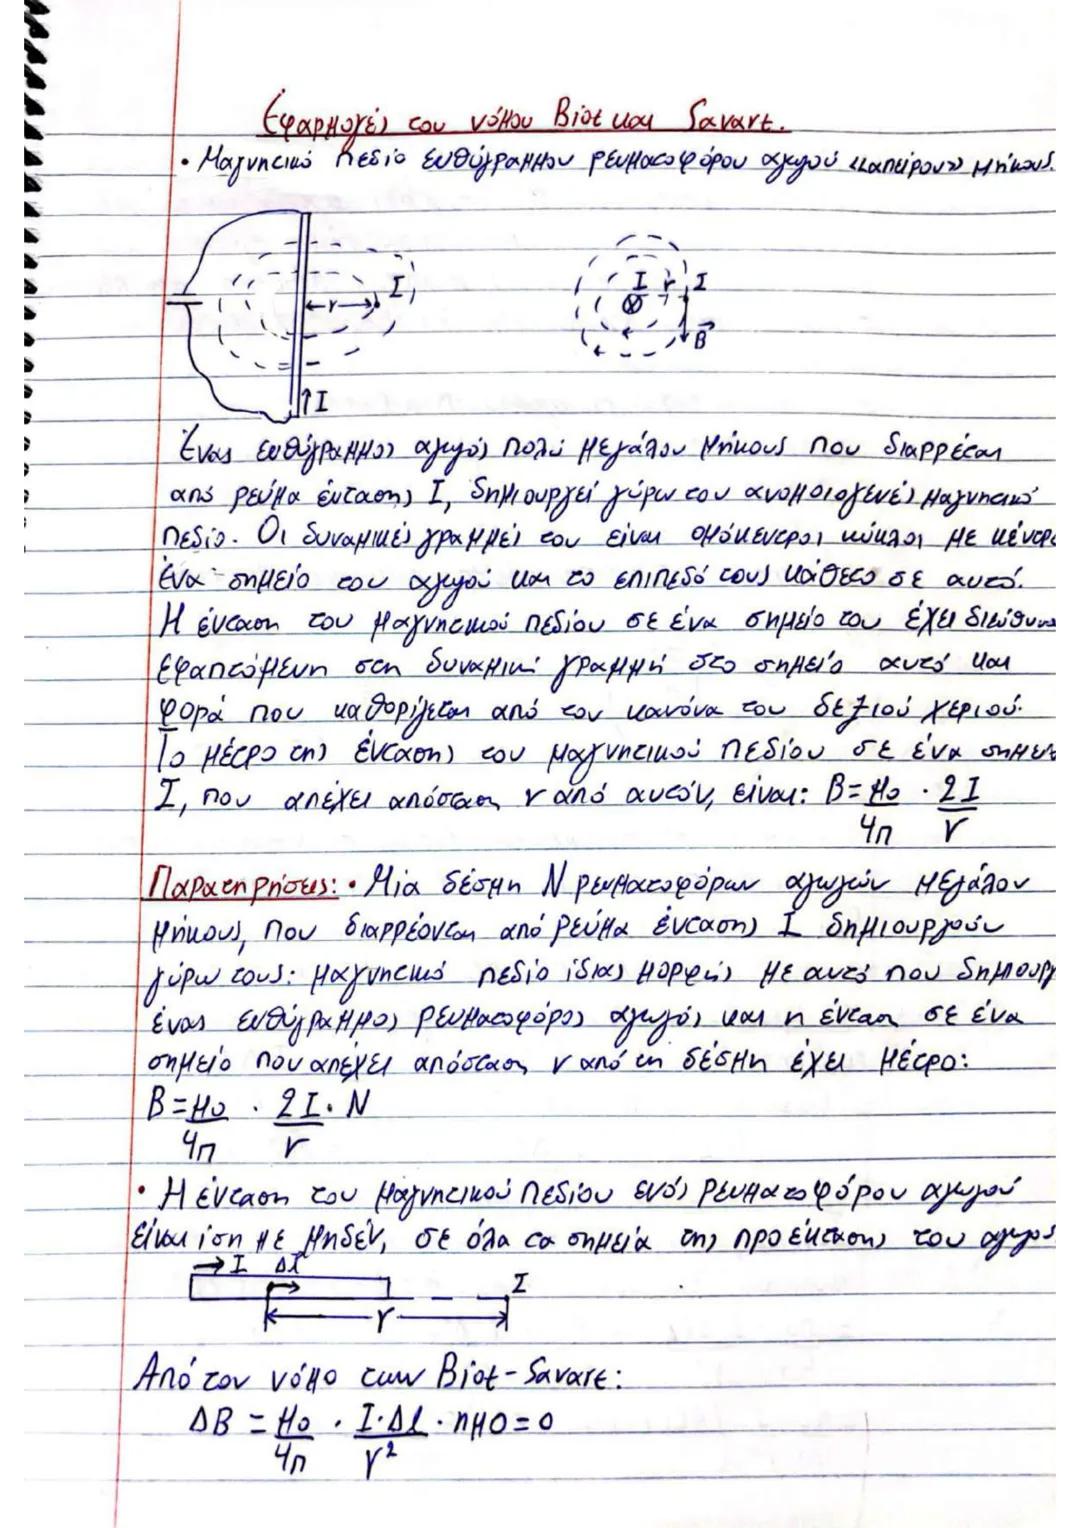 Εφαρμογές του νόμου Biot και Savart.
• Μαγνητικό πεδίο ευθύγραμμου ρευματοφόρου αγωγού «απείρου» μήκους.
r I I
I r I
B
I
Ένας ευθύγραμμος αγωγός πολύ μεγάλου μήκους που διαρρέεται
από ρεύμα έντασης I, δημιουργεί γύρω του ανομοιογενές μαγνητικό
πεδίο. Οι δυναμικές γραμμές του είναι ομόκεντροι κύκλοι με κέντρο
ένα σημείο του αγωγού και το επίπεδό τους κάθετο σε αυτό.
Η ένταση του μαγνητικού πεδίου σε ένα σημείο του έχει διεύθυνση
εφαπτόμενη στη δυναμική γραμμή στο σημείο αυτό και
φορά που καθορίζεται από τον κανόνα του δεξιού χεριού.
Το μέτρο της έντασης του μαγνητικού πεδίου σε ένα σημείο
I, που απέχει απόσταση r από αυτόν, είναι: B = μ₀/4π · 2I/r
Παρατηρήσεις: • Μία δέσμη N ρευματοφόρων αγωγών μεγάλου
μήκους, που διαρρέονται από ρεύμα έντασης I δημιουργούν
γύρω τους: μαγνητικό πεδίο ίδιας μορφής με αυτό που δημιουργεί
ένας ευθύγραμμος ρευματοφόρος αγωγός και η ένταση σε ένα
σημείο που απέχει απόσταση r από τη δέσμη έχει μέτρο:
B = μ₀/4π · 2I·N/r
• Η ένταση του μαγνητικού πεδίου ενός ρευματοφόρου αγωγού
είναι ίση με μηδέν, σε όλα τα σημεία της προέκτασης του αγωγού
I Δl I
r
Από τον νόμο των Biot-Savart:
ΔB = μ₀/4π · I·Δl/r² · ημ0 = 0